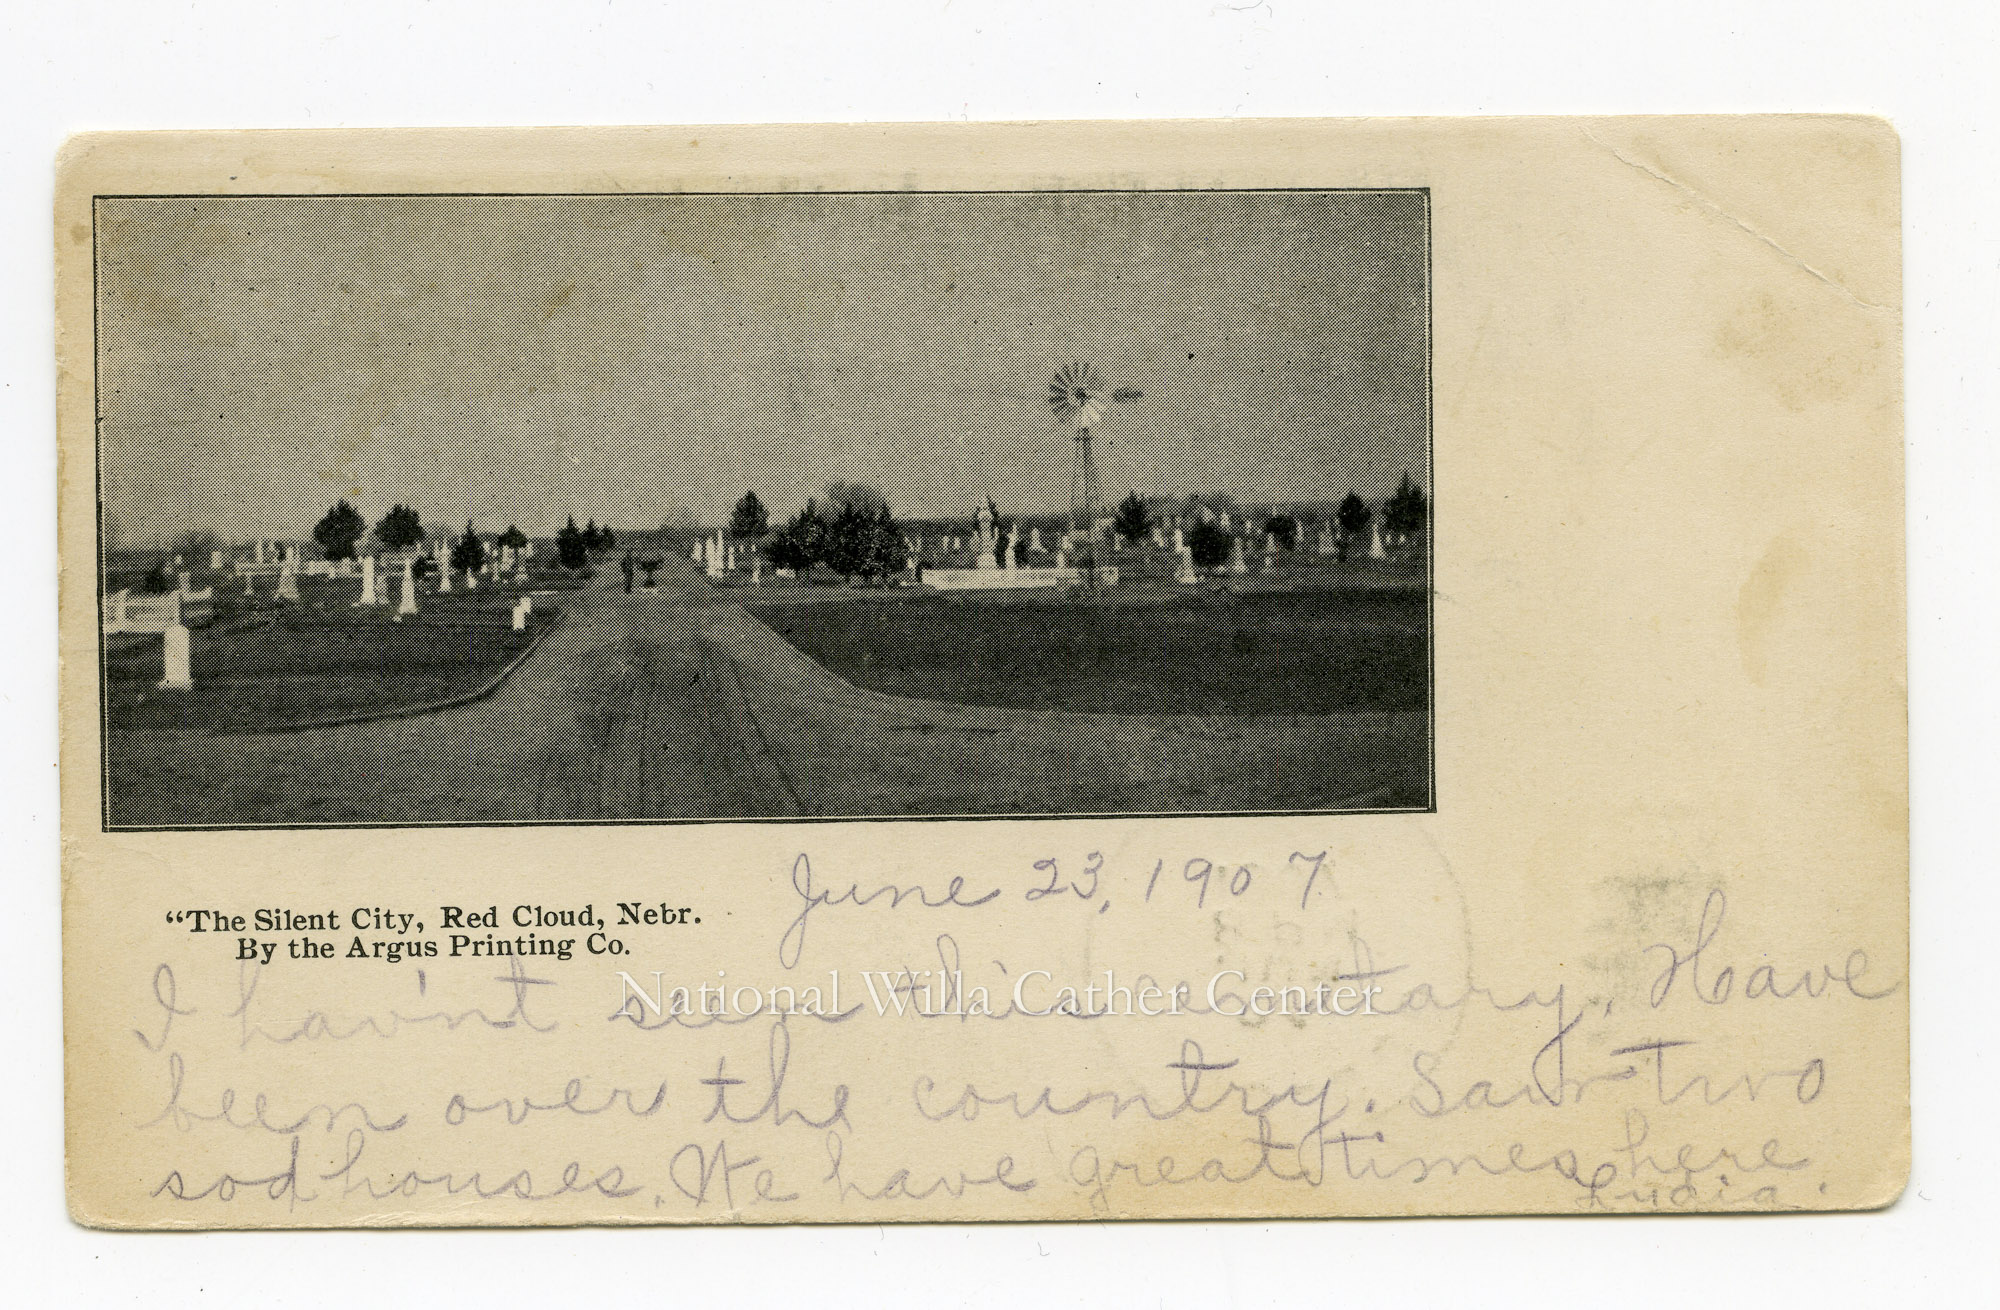 "The Silent City, Red Cloud, Nebr.
By the Argus Printing Co.
June 23, 1907
I hav'nt seen this cemetary. Have
National Willa Cather Center
been over the country. Saw Two
sod houses. We have great times here
Lydia.